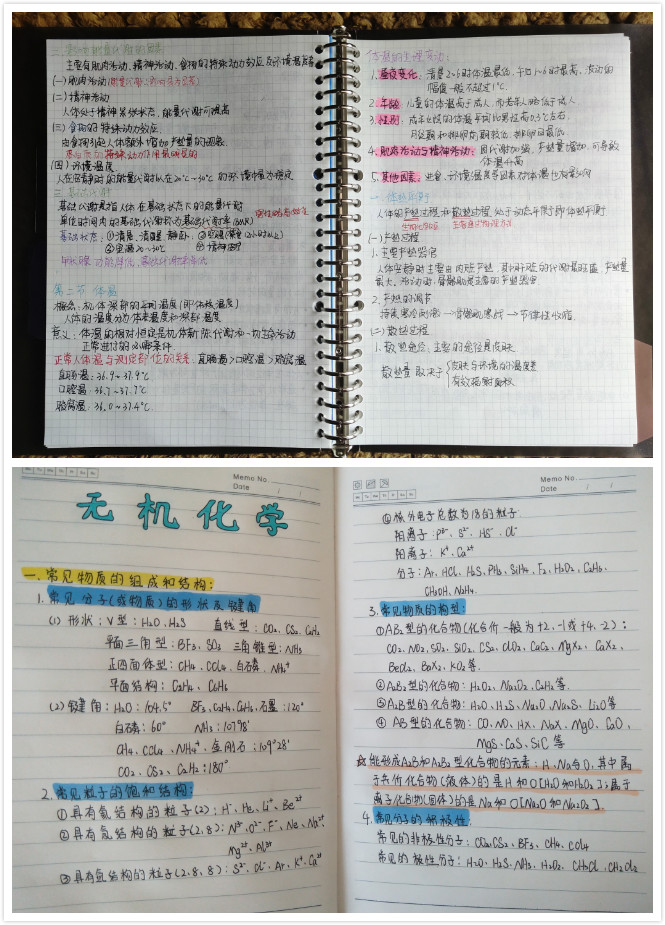 主要有肌肉活动、精神活动、食物的特殊动力效应及环境温度等
(一)肌肉活动
(二)精神活动
人体处于精神紧张状态,能量代谢可提高
(三)食物的特殊动力效应
由食物引起人体额外增加产热量的现象
(四)环境温度
人在安静时的能量代谢以在20℃~30℃的环境中最为稳定
三 基础代谢
基础代谢是指人体在基础状态下的能量代谢
单位时间内的基础代谢称为基础代谢率(BMR)
基础状态:①清晨、清醒、静卧;
③室温20~30℃
第二节 体温
概念:机体深部的平均温度(即体核温度)
人体的温度分为体表温度和深部温度
意义:体温的相对恒定是机体新陈代谢和一切生命活动
正常进行的必要条件
正常人体温与测定部位的关系:直肠温>口腔温>腋窝温
直肠温:36.9~37.9℃
口腔温:36.7~37.7℃
腋窝温:36.0~37.4℃
体温的生理变动:
1.昼夜变化:清晨2-6时体温最低,午后1-6时最高,波动的
幅度一般不超过1℃
2.年龄:儿童的体温高于成人,而老年人略低于成人
3.性别:成年女性的体温平均比男性高0.3℃左右,
4.肌肉活动与精神活动:因代谢加强,产热量增加,可导致
体温升高
5.其他因素:进食、环境温度等因素对体温也有影响
人体的产热过程和散热过程处于动态平衡于即体热平衡
(一)产热过程
1.主要产热器官
人体安静时主要由内脏产热,其中肝脏的代谢最旺盛,产热量
最大。活动时,骨骼肌是主要的产热器官
2.产热的调节
(二)散热过程
1.散热途径:主要的途径是皮肤
散热量取决于 皮肤与环境的温度差
有效辐射面积
Memo No.
Date / /
无机化学
一.常见物质的组成和结构:
1.常见分子(或物质)的形状及键角
(1)形状:V型:H2O、H2S 直线型:CO2、CS2、C2H2
平面三角型:BF3、SO3 三角锥型:NH3
正四面体型:CH4、CCl4、白磷、NH4+
平面结构:C2H4、C6H6
(2)键角:H2O:104.5° BF3、C2H4、C6H6、石墨:120°
白磷:60° NH3:107°18'
CH4、CCl4、NH4+、金刚石:109°28'
CO2、CS2、C2H2:180°
2.常见粒子的饱和结构:
①具有氦结构的粒子(2):H-、He、Li+、Be2+
②具有氖结构的粒子(2、8):N3-、O2-、F-、Ne、Na+、
Mg2+、Al3+
③具有氩结构的粒子(2、8、8):S2-、Cl-、Ar、K+、Ca2+
Memo No.
Date / /
Mo Tu We Th Fr Sa Su
④核外电子总数为18的粒子:
阳离子:K+、Ca2+
分子:Ar、HCl、H2S、PH3、SiH4、F2、H2O2、C2H6、
CH3OH、N2H4
3.常见物质的构型:
①AB2型的化合物(化合价一般为+2、-1或+4、-2):
CO2、NO2、SO2、SiO2、CS2、ClO2、CaC2、MgX2、CaX2、
BeCl2、BaX2、KO2等
②A2B2型的化合物:H2O2、Na2O2、C2H2等
③A2B型的化合物:H2O、H2S、Na2O、Na2S、Li2O等
④AB型的化合物:CO、NO、HX、NaX、MgO、CaO、
MgS、CaS、SiC等
☆能形成A2B和A2B2型化合物的元素:H、Na与O,其中属
于共价化合物(液体)的是H和O[H2O和H2O2];属于
离子化合物(固体)的是Na和O[Na2O和Na2O2]
4.常见分子的极性:
常见的非极性分子:CO2、CS2、BF3、CH4、CCl4
常见的极性分子:H2O、H2S、NH3、H2O2、CH3Cl、CH2Cl2